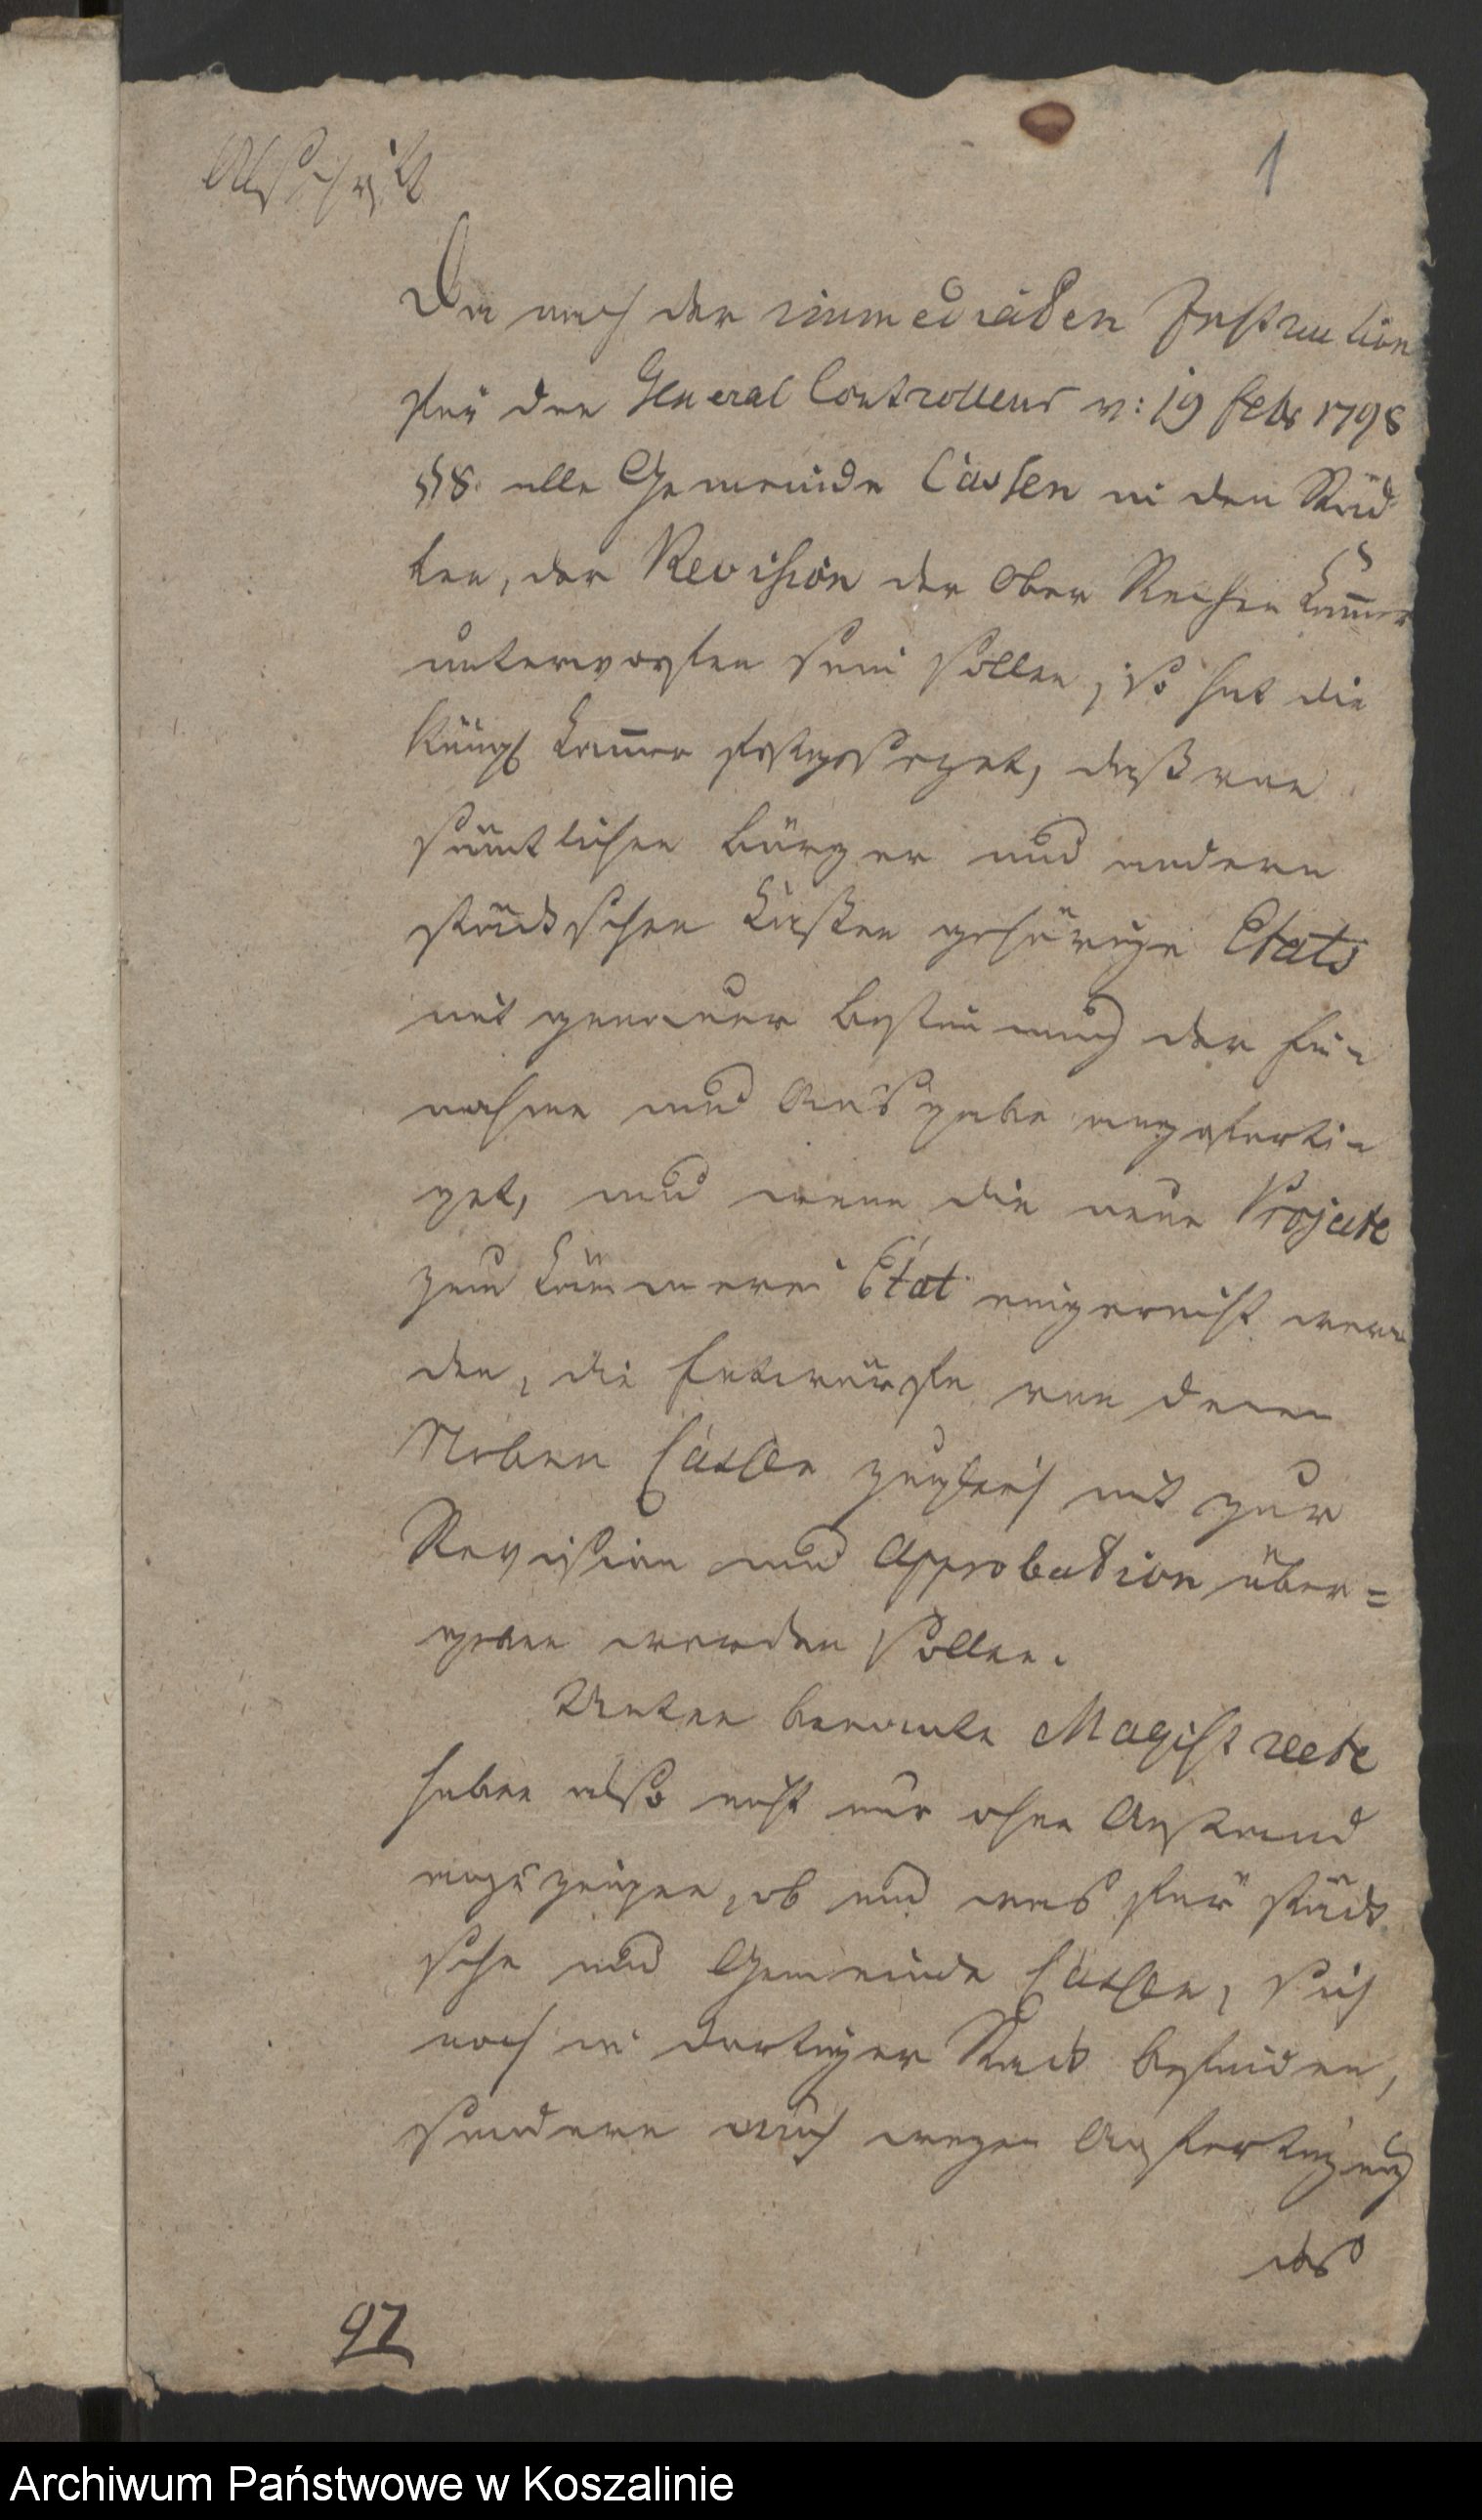 Abschrift
1
Da nach der immediaten Instruction
für den General Controlleur v: 19 Febr 1798
§ 8. alle Gemeinde Cassen in den Städ
ten, der Revision der Ober Rechen Kam̅er
unterworfen sein sollen, so hat die
Königl Kam̅er festgesezet, daß von
sämtlichen Bürger und andern
städschen Kaßen gehörige Etats
mit genauer Bestimmung der Ein-
nahme und Ausgabe angeferti-
get, und wenn die neue Projecte
zum Kämmerei Etat eingereicht wer-
den, die Entwürfe von denen
Neben Cassen zugleich mit zur
Revision und Approbation über=
geben werden sollen.
Unten benante Magistraete
haben also nicht nur ohne Anstand
anzuzeigen, ob und was für städ
sche und Gemeinde Cassen, sich
noch in dortiger Stadt befinden,
sondern auch wegen Anfertigung
des
97
Archiwum Państwowe w Koszalinie